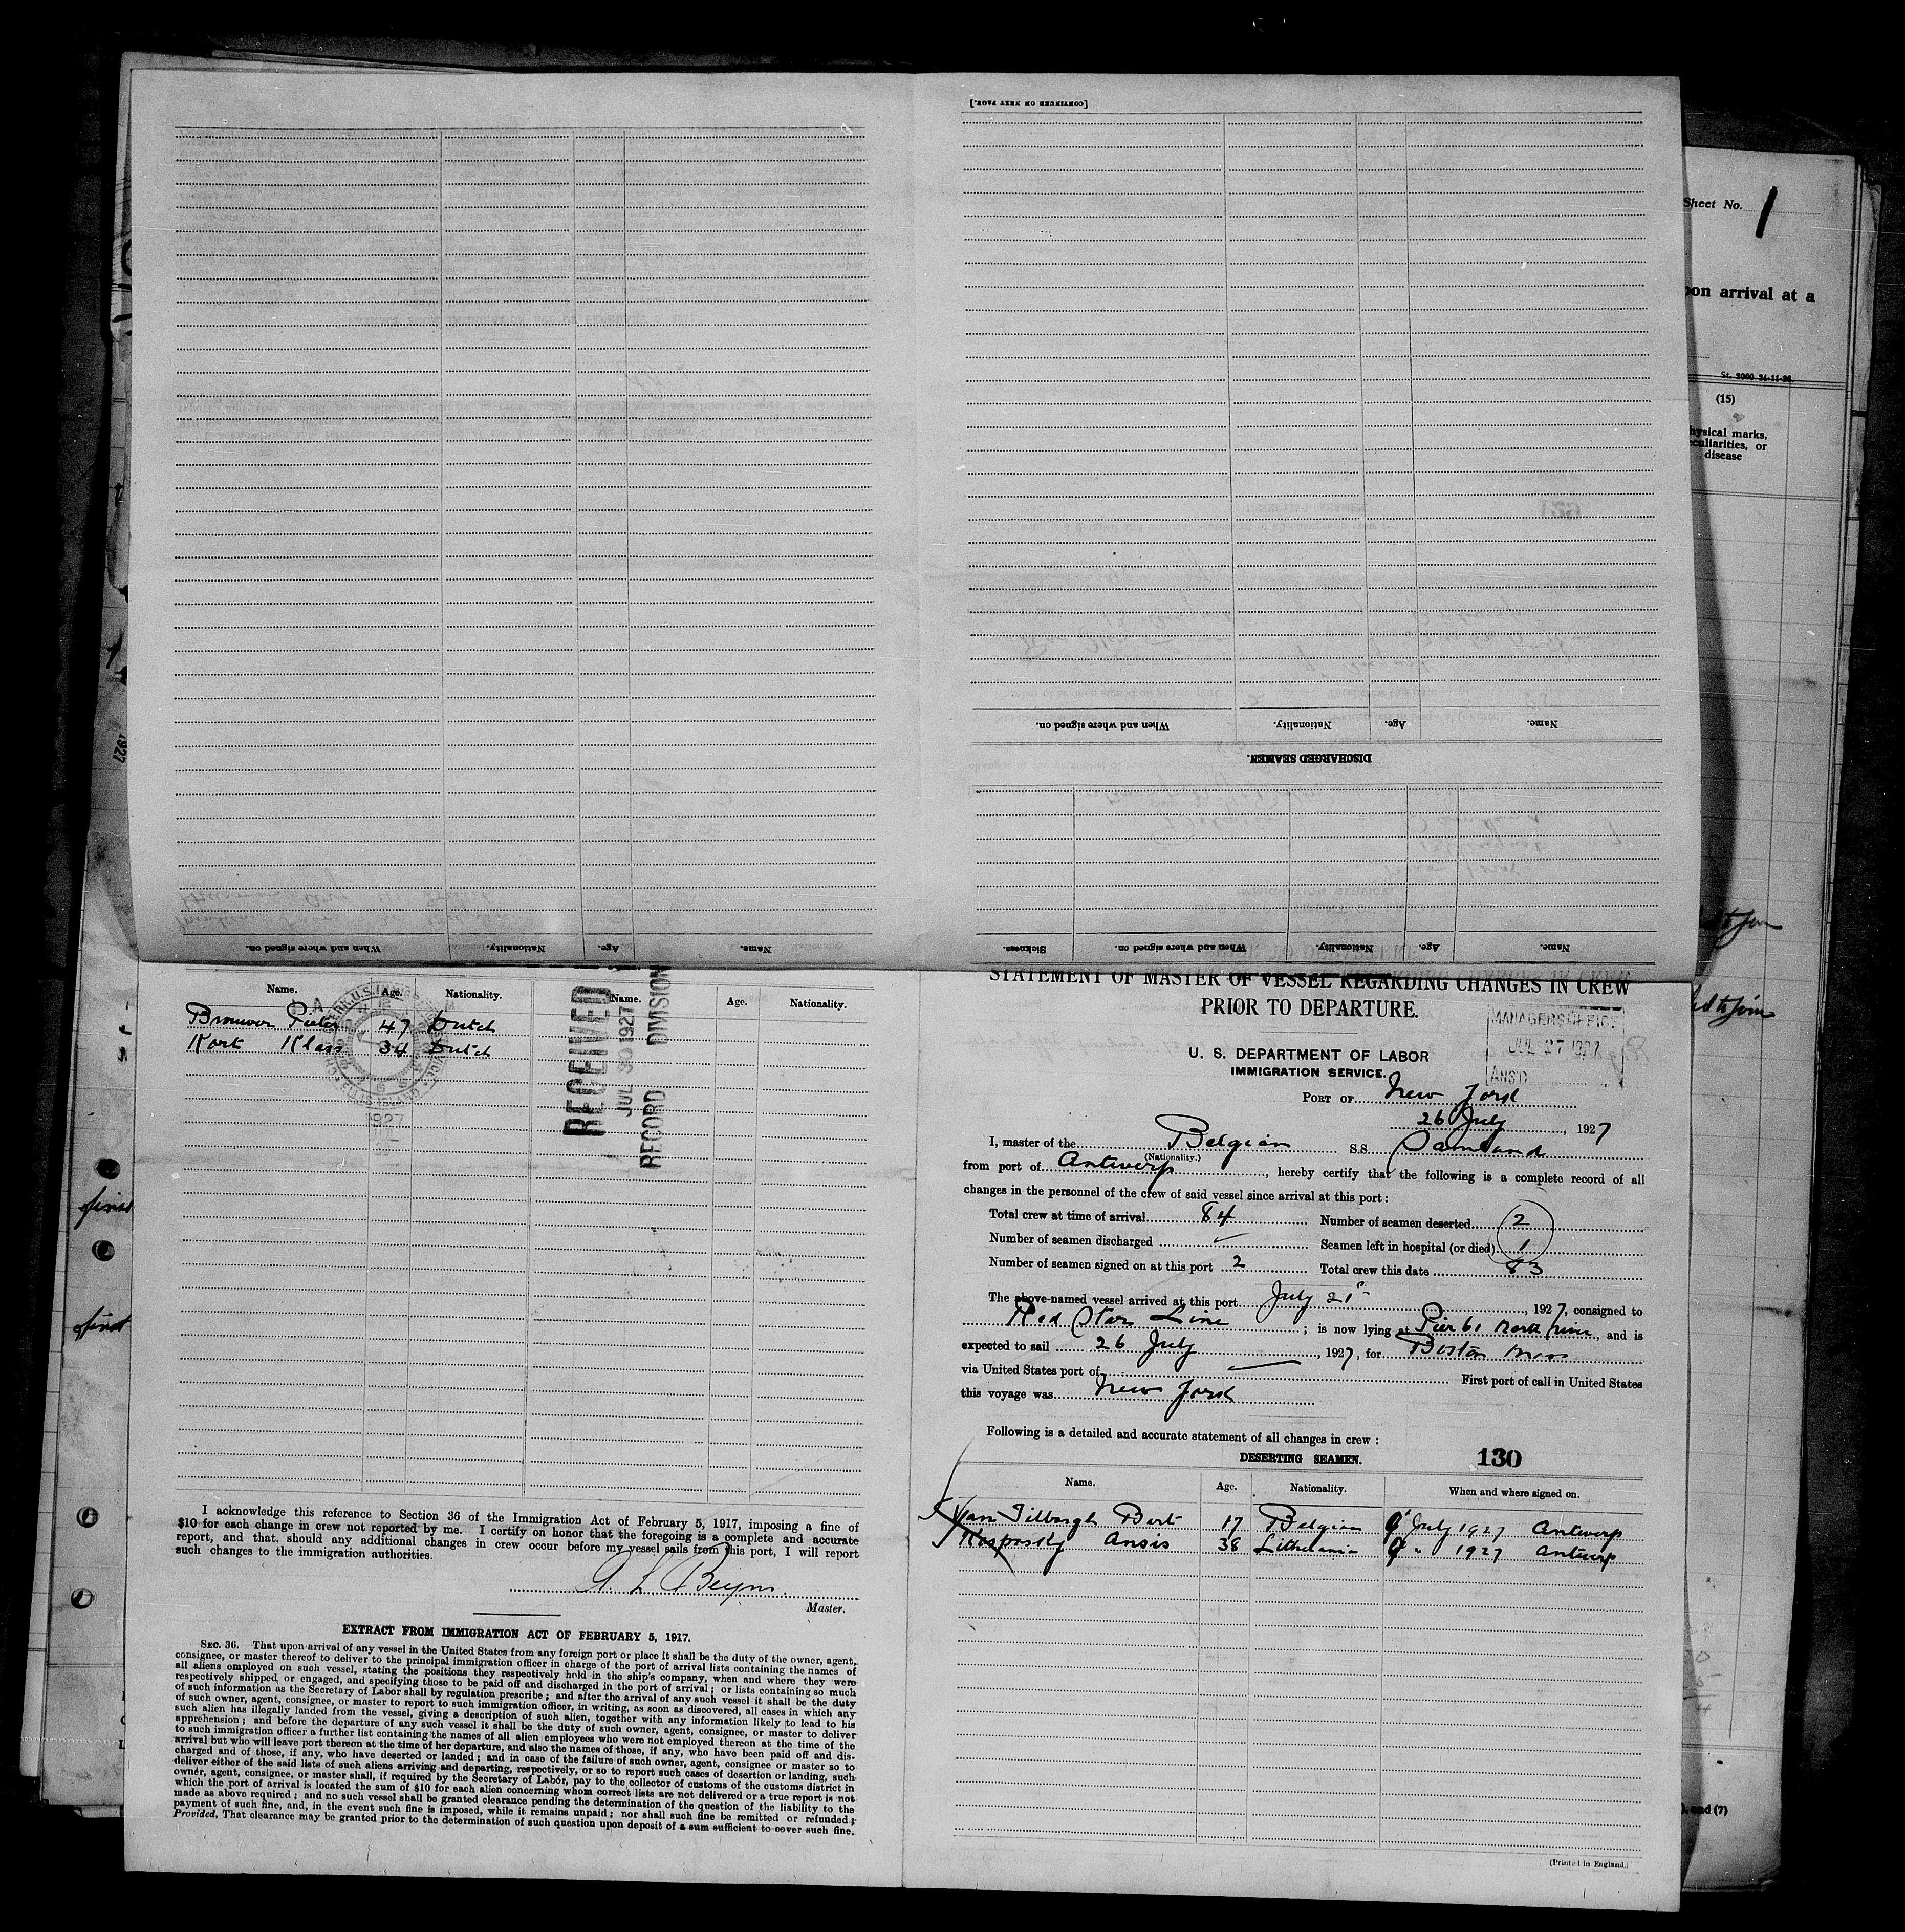 [CONTINUED ON NEXT PAGE.]
When and where signed on. Nationality. Age. Name.
DISCHARGED SEAMEN.
When and where signed on. Nationality. Age. Name.
Sickness. When and where signed on. Nationality. Age. Name.
Sheet No. 1
on arrival at a
St. 3000 24-11-26.
(15)
hysical marks,
culiarities, or
disease
to join
ed to join
, and (7)
1927
Name. Age. Nationality. Name. Age. Nationality.
Brouwer Pieter 47 Dutch
Kort Klass 34 Dutch
1927
RECEIVED
JUL 30 1927
RECORD DIVISION
I acknowledge this reference to Section 36 of the Immigration Act of February 5, 1917, imposing a fine of
$10 for each change in crew not reported by me. I certify on honor that the foregoing is a complete and accurate
report, and that, should any additional changes in crew occur before my vessel sails from this port, I will report
such changes to the immigration authorities.
Master.
EXTRACT FROM IMMIGRATION ACT OF FEBRUARY 5, 1917.
SEC. 36. That upon arrival of any vessel in the United States from any foreign port or place it shall be the duty of the owner, agent,
consignee, or master thereof to deliver to the principal immigration officer in charge of the port of arrival lists containing the names of
all aliens employed on such vessel, stating the positions they respectively hold in the ship's company, when and where they were
respectively shipped or engaged, and specifying those to be paid off and discharged in the port of arrival; or lists containing so much
of such information as the Secretary of Labor shall by regulation prescribe; and after the arrival of any such vessel it shall be the duty
of such owner, agent, consignee, or master to report to such immigration officer, in writing, as soon as discovered, all cases in which any
such alien has illegally landed from the vessel, giving a description of such alien, together with any information likely to lead to his
apprehension; and before the departure of any such vessel it shall be the duty of such owner, agent, consignee, or master to deliver
to such immigration officer a further list containing the names of all alien employees who were not employed thereon at the time of the
arrival but who will leave port thereon at the time of her departure, and also the names of those, if any, who have been paid off and dis-
charged and of those, if any, who have deserted or landed; and in case of the failure of such owner, agent, consignee or master so to
deliver either of the said lists of such aliens arriving and departing, respectively, or so to report such cases of desertion or landing, such
owner, agent, consignee, or master shall, if required by the Secretary of Labor, pay to the collector of customs of the customs district in
which the port of arrival is located the sum of $10 for each alien concerning whom correct lists are not delivered or a true report is not
made as above required; and no such vessel shall be granted clearance pending the determination of the question of the liability to the
payment of such fine, and, in the event such fine is imposed, while it remains unpaid; nor shall such fine be remitted or refunded:
Provided, That clearance may be granted prior to the determination of such question upon deposit of a sum sufficient to cover such fine.
STATEMENT OF MASTER OF VESSEL REGARDING CHANGES IN CREW
PRIOR TO DEPARTURE.
MANAGERS OFFICE
JUL 27 1927
ANS'D
U. S. DEPARTMENT OF LABOR
IMMIGRATION SERVICE.
PORT OF New York
26 July, 1927
I, master of the Belgian S.S. Samland
(Nationality.)
from port of Antwerp, hereby certify that the following is a complete record of all
changes in the personnel of the crew of said vessel since arrival at this port:
Total crew at time of arrival 84 Number of seamen deserted 2
Number of seamen discharged Seamen left in hospital (or died) 1
Number of seamen signed on at this port 2 Total crew this date 83
The above-named vessel arrived at this port July 21st, 1927, consigned to
Red Star Line; is now lying at Pier 61 North River, and is
expected to sail 26 July, 1927, for Boston Mass
via United States port of First port of call in United States
this voyage was New York
Following is a detailed and accurate statement of all changes in crew:
DESERTING SEAMEN. 130
Name. Age. Nationality. When and where signed on.
Van Tilborgh Bert 17 Belgian 9 July 1927 Antwerp
Ansis 38 Lithuania 9 " 1927 Antwerp
(Printed in England.)